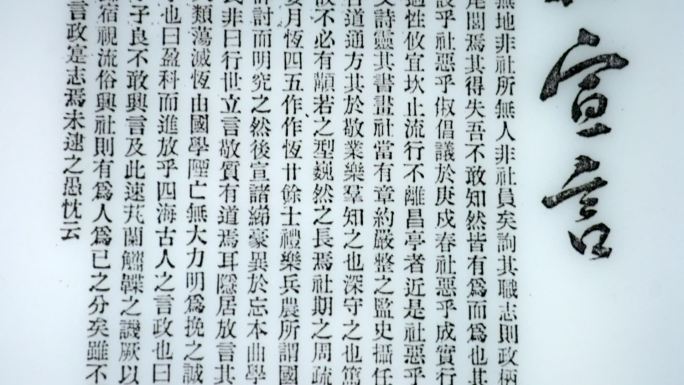 宣言
無地非社所無人非社員矣詢其職志則政柄
尾閭焉其得失吾不敢知然皆有爲而爲也其
設乎社惡乎俶倡議於庚戌春社惡乎成實行
適性攸宜坎止流行不離昌亭者近是社惡乎
文詩靈其書畫社當有章約嚴整之監史攝任
者道通方其於敬業樂羣知之也深守之也篤
不必有顒若之型巍然之長焉社期之周疏
月恆四五作作恆廿餘士禮樂兵農所謂國
討而明究之然後宣諸綈豪異於忘本曲學
民非曰行世立言敬質有道焉耳隱居放言其
類蕩滅恆由國學陻亡無大力明爲挽之誠
也曰盈科而進放乎四海古人之言政也曰
予良不敢興言及此速芄蘭觿韘之譏厥以
宿視流俗興社則有爲人爲己之分矣雖不
言政寔志焉未逮之愚忱云